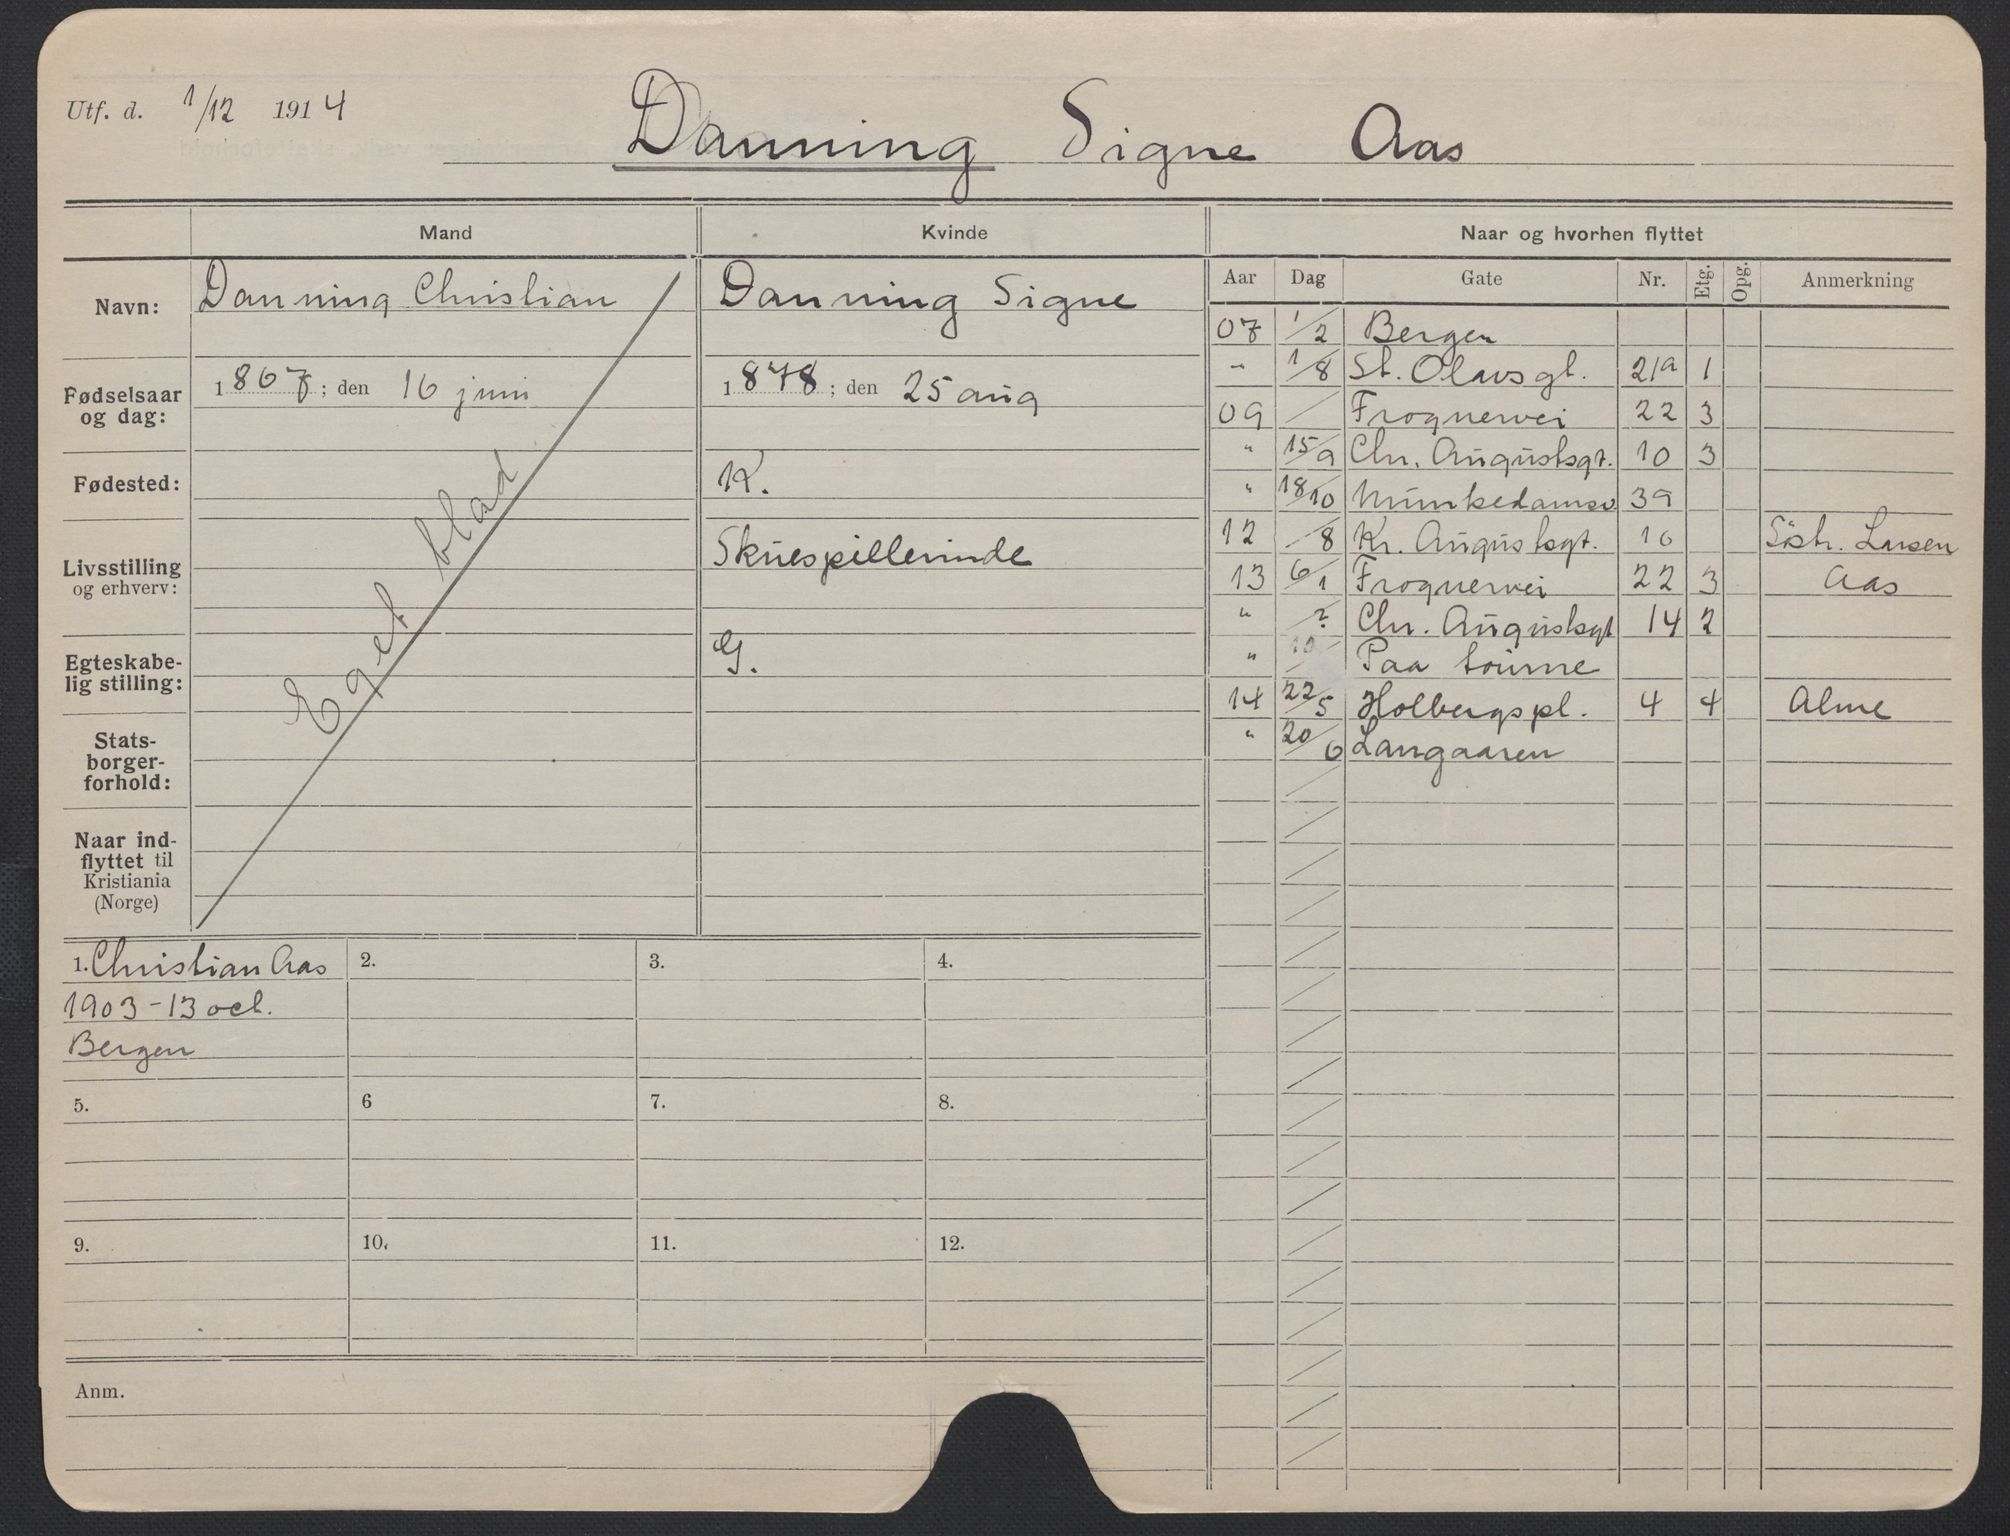 Utf. d. 1/12 1914
Danning Signe Aas
Mand Kvinde Naar og hvorhen flyttet
Navn: Danning Christian Danning Signe
Aar Dag Gate Nr. Etg. Opg. Anmerkning
Fødselsaar og dag: 1867; den 16 juni 1878; den 25 aug
Eget blad
Fødested: K.
Livsstilling og erhverv: Skuespillerinde
Egteskabelig stilling: G.
Statsborgerforhold:
Naar indflyttet til Kristiania (Norge)
07 1/2 Bergen
" 1/8 St. Olavsgt. 21a 1
09 / Frognervei 22 3
" 15/9 Chr. Augustsgt. 10 3
" 18/10 Munkedamsv. 39
12 /8 Kr. Augustsgt. 16 Söstr. Larsen
13 6/1 Frognervei 22 3 Aas
" /? Chr. Augustsgt 14 2
" 10/ Paa tourne
14 22/5 Holbergspl. 4 4 Alme
" 20/6 Langaaren
1. Christian Aas 2. 3. 4.
1903-13 oct.
Bergen
5. 6 7. 8.
9. 10. 11. 12.
Anm.